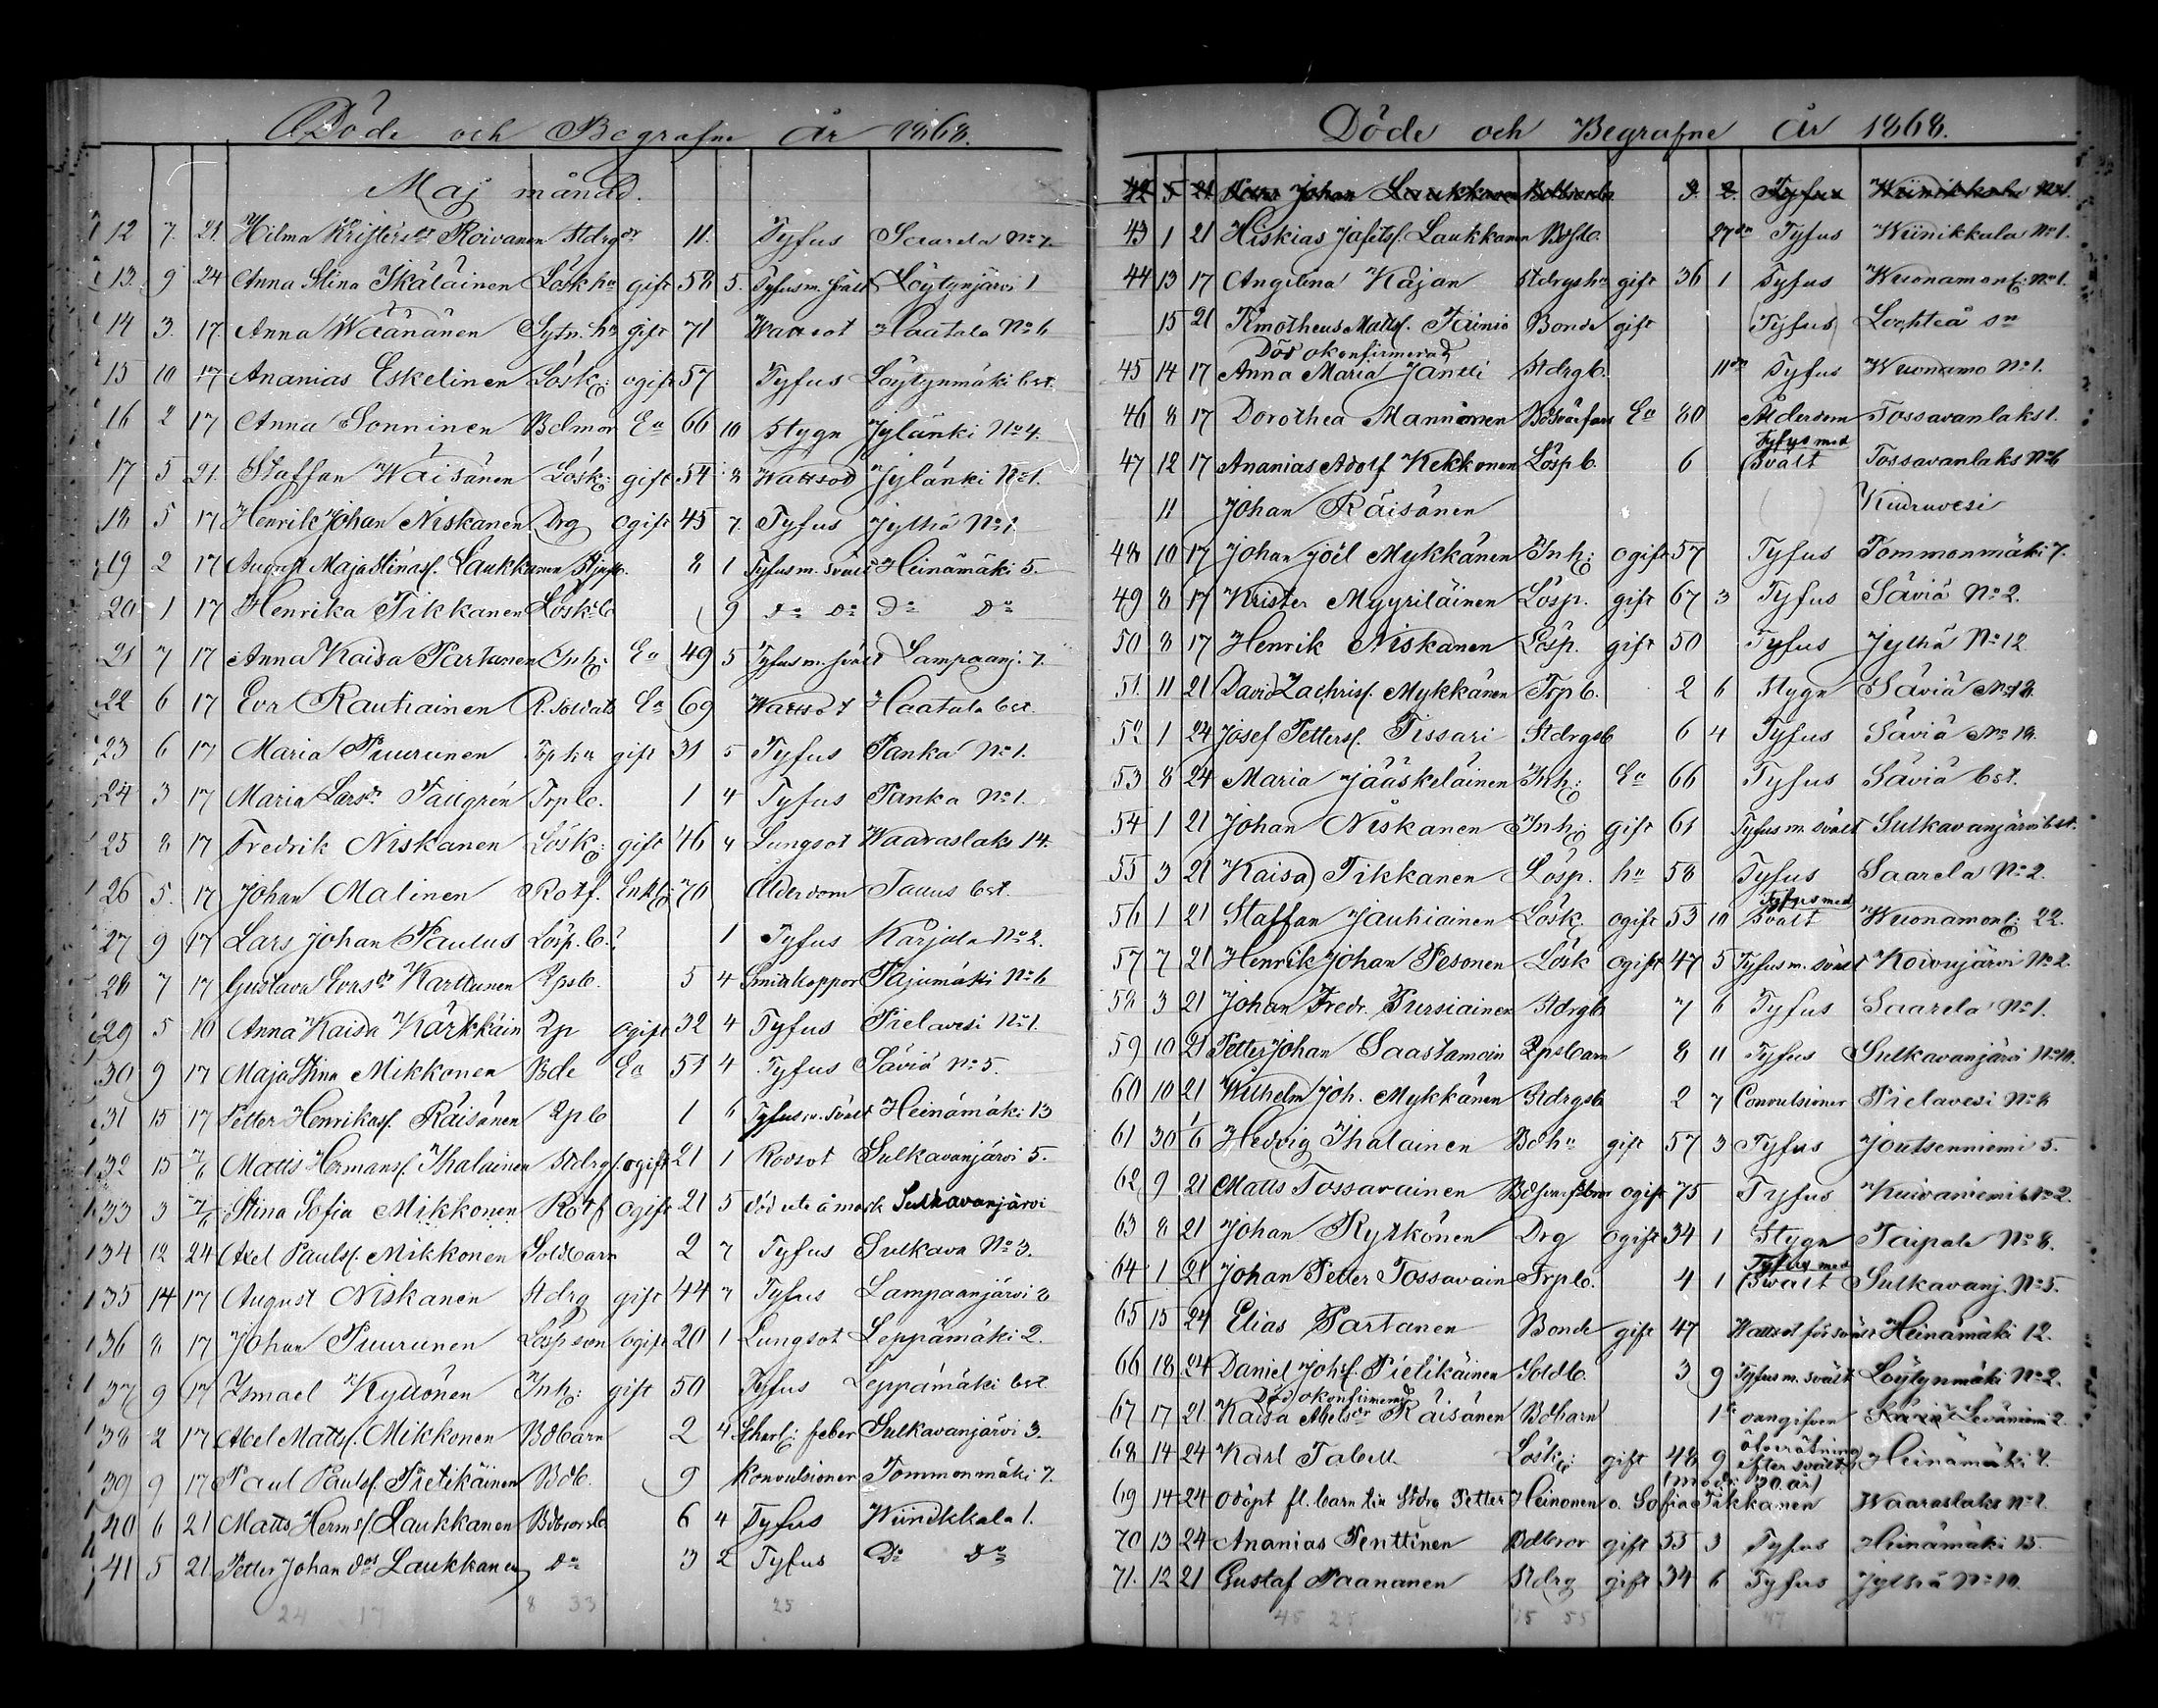 Döde och Begrafne År 1868.
Maj månad.
12 7. 21. Hilma Kristersdr Roivanen Stdrgdr 11. Tyfus Saarela No 7.
13. 9 24 Anna Stina Ikäläinen Lösk hu gift 58 5. Tyfus m. svält Löytynjärvi 1
14 3. 17. Anna Wäänänen Sytn. hu gift 71 Wattsot Haatala No 6
15 10 17 Ananias Eskelinen Lösk: ogift 57 Tyfus Löytynmäki bst.
16 2 17 Anna Sonninen Bdmor Ea 66 10 Stygn Jylänki No 4.
17 5 21. Staffan Wäisänen Lösk: gift 54 8 Wattsot Jylänki No 1.
18 5 17 Henrik Johan Niskanen Drg ogift 45 7. Tyfus Jylhä No 1
19 2 17 August Maja Stinas. Laukkanen 8 1 Tyfus m. svält Heinämäki 5.
20 1 17 Henrika Tikkanen Lösk. b 9 do do do do
21 7 17 Anna Kaisa Partanen Inh: Ea 49 5 Tyfus m. svält Lampaanj. 7.
22 6 17 Eva Rautiainen R. Soldats Ea 69 Wattsot Haatala bst.
23 6 17 Maria Puurunen Trp hu gift 31 5 Tyfus Panka No 1.
24 3 17 Maria Larsdr Tallgrén Trp b. 1 4 Tyfus Panka No 1.
25 8 17 Fredrik Niskanen Lösk: gift 46 4 Lungsot Waaraslaks 14.
26 5. 17 Johan Malinen Rotf. Enkl: 70 Ålderdom Tauus bst.
27 9 17 Lars Johan Paulus Lösp. b. 1 Tyfus Karjala No 2.
28 7 17 Gustava Evasdr Karttunen Lpsb. 5 4 Smittkoppor Pajumäki No 6
29 5 10 Anna Kaisa Kärkkäin Lp ogift 32 4 Tyfus Pielavesi No 1.
30 9 17 Maja Stina Mikkonen Bde Ea 51 4 Tyfus Säviä No 5.
31 15 17 Petter Henrikas. Räisänen Lp b 1 6 Tyfus m. svält Heinämäki 13
32 15 7/6 Matts Hermans. Ihalainen Stdrgs. ogift 21 1 Rödsot Sulkavanjärvi 5.
33 3 7/6 Stina Sofia Mikkonen Rotf ogift 21 5 död ute å mark Sulkavanjärvi
34 12 24 Axel Pauls. Mikkonen Soldbarn 2 7 Tyfus Sulkava No 3.
35 14 17 August Niskanen Stdrg gift 44 7 Tyfus Lampaanjärvi 2
36 8 17 Johan Puurunen Lösp son ogift 20 1 Lungsot Leppämäki 2.
37 9 17 Ismael Kyllönen Inh: gift 50 Tyfus Leppämäki bst.
38 2 17 Abel Matts. Mikkonen Bdbarn 2 4 Skarl: feber Sulkavanjärvi 3.
39 9 17 Paul Pauls. Pietikäinen Bdb. 9 Konvulsioner Tommonmäki 7.
40 6 21 Matts Herms. Laukkanen Bdbrorsb. 6 4 Tyfus Wiinikkala 1.
41 5 21. Petter Johan dos Laukkanen do 3 2 Tyfus Do Do
24 17 8 33 25
Döde och Begrafne År 1868.
42 5 21 Johan Laukkanen Bdbrorsb. 3. 2. Tyfus Wiinikkala No 1.
43 1 21 Hiskias Jafets. Laukkanen Bdsb. 27 dr Tyfus Wiinikkala No 1.
44 13 17 Angelina Kajan Stdrgshu gift 36 1 Tyfus Wuonamonl: No 1.
15 21 Timotheus Matts. Fäiniö Bonde gift (Tyfus) Lochteå sn
Död okonfirmerad
45 14 17 Anna Maria Jantti Stdrgb. 11 dr Tyfus Wuonamo No 1.
46 8 17 Dorothea Manninen Bdsvärfars Ea 80 Ålderdom Tossavanlaks 1.
Tyfus med
47 12 17 Ananias Adolf Kekkonen Lösp b. 6 Svält Tossavanlaks No 6
11 Johan Räisänen ( ) Kiuruvesi
48 10 17 Johan Joël Mykkänen Inh: ogift 57 Tyfus Tommonmäki 7.
49 8 17 Krister Myyriläinen Lösp. gift 67 3 Tyfus Säviä No 2.
50 8 17 Henrik Niskanen Lösp. gift 50 Tyfus Jylhä No 12
51. 11 21 David Zachris. Mykkänen Trp b. 2 6 Stygn Säviä No 12.
52 1 24 Josef Petters. Tissari Stdrgsb 6 4 Tyfus Säviä No 12.
53 8 24 Maria Jääskeläinen Inh: Ea 66 Tyfus Säviä bst.
54 1 21 Johan Niskanen Inh: gift 61 Tyfus m. svält Sulkavanjärvi bst.
55 3 21 Kaisa Tikkanen Lösp. hu 58 Tyfus Saarela No 2.
Tyfus med
56 1 21 Staffan Jauhiainen Lösk. ogift 53 10 Svält Wuonamonl: 22.
57 7 21 Henrik Johan Pesonen Lösk ogift 47 5 Tyfus m. svält Koivujärvi No 2.
58 3 21 Johan Fredr. Pursiainen Stdrgb 7 6 Tyfus Saarela No 1.
59 10 21 Petter Johan Saastamoin Lpsbarn 8 11 Tyfus Sulkavanjärvi No 10.
60 10 21 Wilhelm Joh. Mykkänen Stdrgsb 2 7 Convulsioner Pielavesi No 2
61 30 6 Hedvig Ihalainen Bdhu gift 57 3 Tyfus Joutsenniemi 5.
62 9 21 Matts Tossavainen ogift 75 Tyfus Kuivaniemi No 2.
63 8 21 Johan Rytkönen Drg ogift 34 1 Stygn Taipale No 8.
Tyfus med
64 1 21 Johan Petter Tossavain Trpb. 4 1 Svält Sulkavanj. No 5.
65 15 24 Elias Partanen Bonde gift 47 Wattsot för svält Heinämäki 12.
66 18 24 Daniel Johs. Pielikäinen Soldb. 3 9 Tyfus m. svält Löytynmäki No 2.
Död okonfirmerad
67 17 21 Kaisa Abelsdr Räisänen Bdbarn 1 dr oangifven Säviä Leväniemi 2.
68 14 24 Karl Tabell Lösk: gift 48 9 öfverätning efter svält Heinämäki 4.
(modr 30 år)
69 14 24 odöpt fl. barn till Stdrg Petter Heinonen o. Sofia Tikkanen Waaraslaks No 1.
70 13 24 Ananias Penttinen Bdbror gift 55 3 Tyfus Heinämäki 15.
71. 12 21 Gustaf Paananen Stdrg gift 34 6 Tyfus Jylhä No 10.
45 25 15 55 47